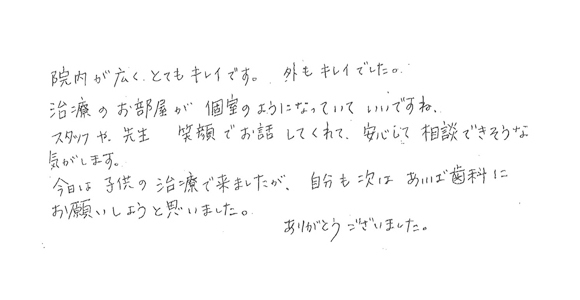 院内が広く、とてもキレイです。 外もキレイでした。
治療のお部屋が個室のようになっていていいですね。
スタッフや、先生 笑顔でお話してくれて、安心して相談できそうな
気がします。
今日は子供の治療で来ましたが、自分も次は 歯科に
お願いしようと思いました。
ありがとうございました。